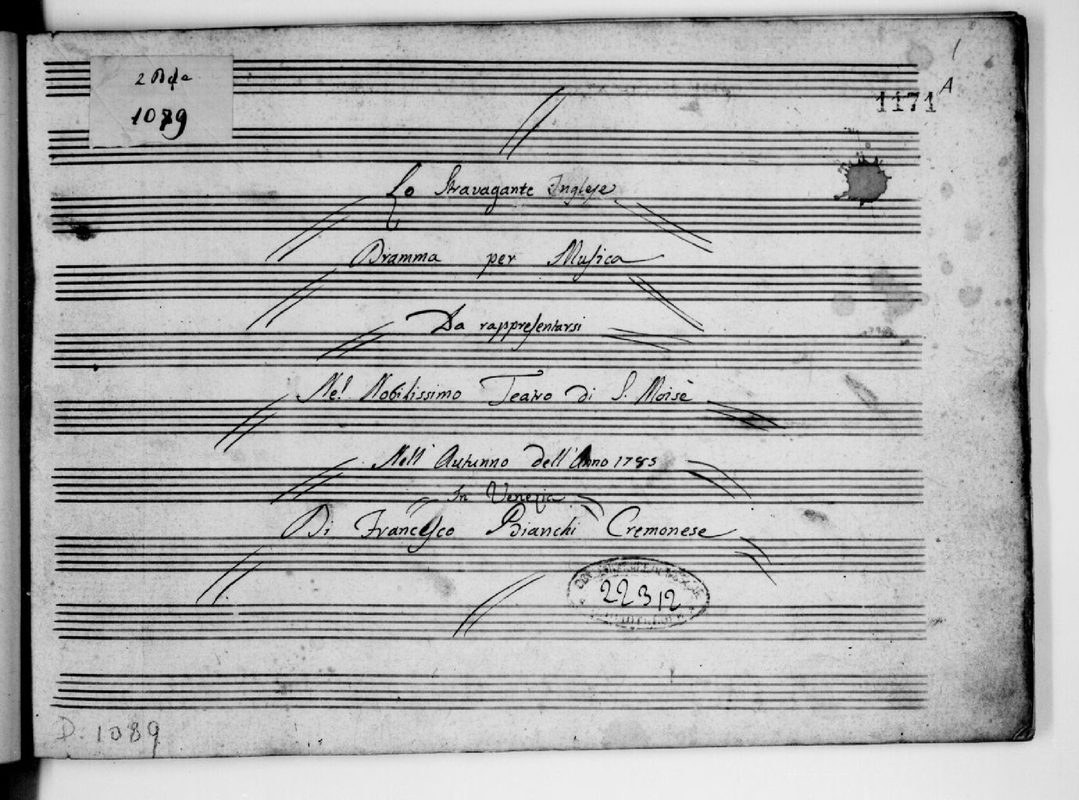 1089
1171 A
Lo Stravagante Inglese
Dramma per Musica
Da rappresentarsi
Nel Nobilissimo Teatro di S. Moisè
Nell Autunno dell'Anno 1785
In Venezia
Di Francesco Bianchi Cremonese
22312
D. 1089